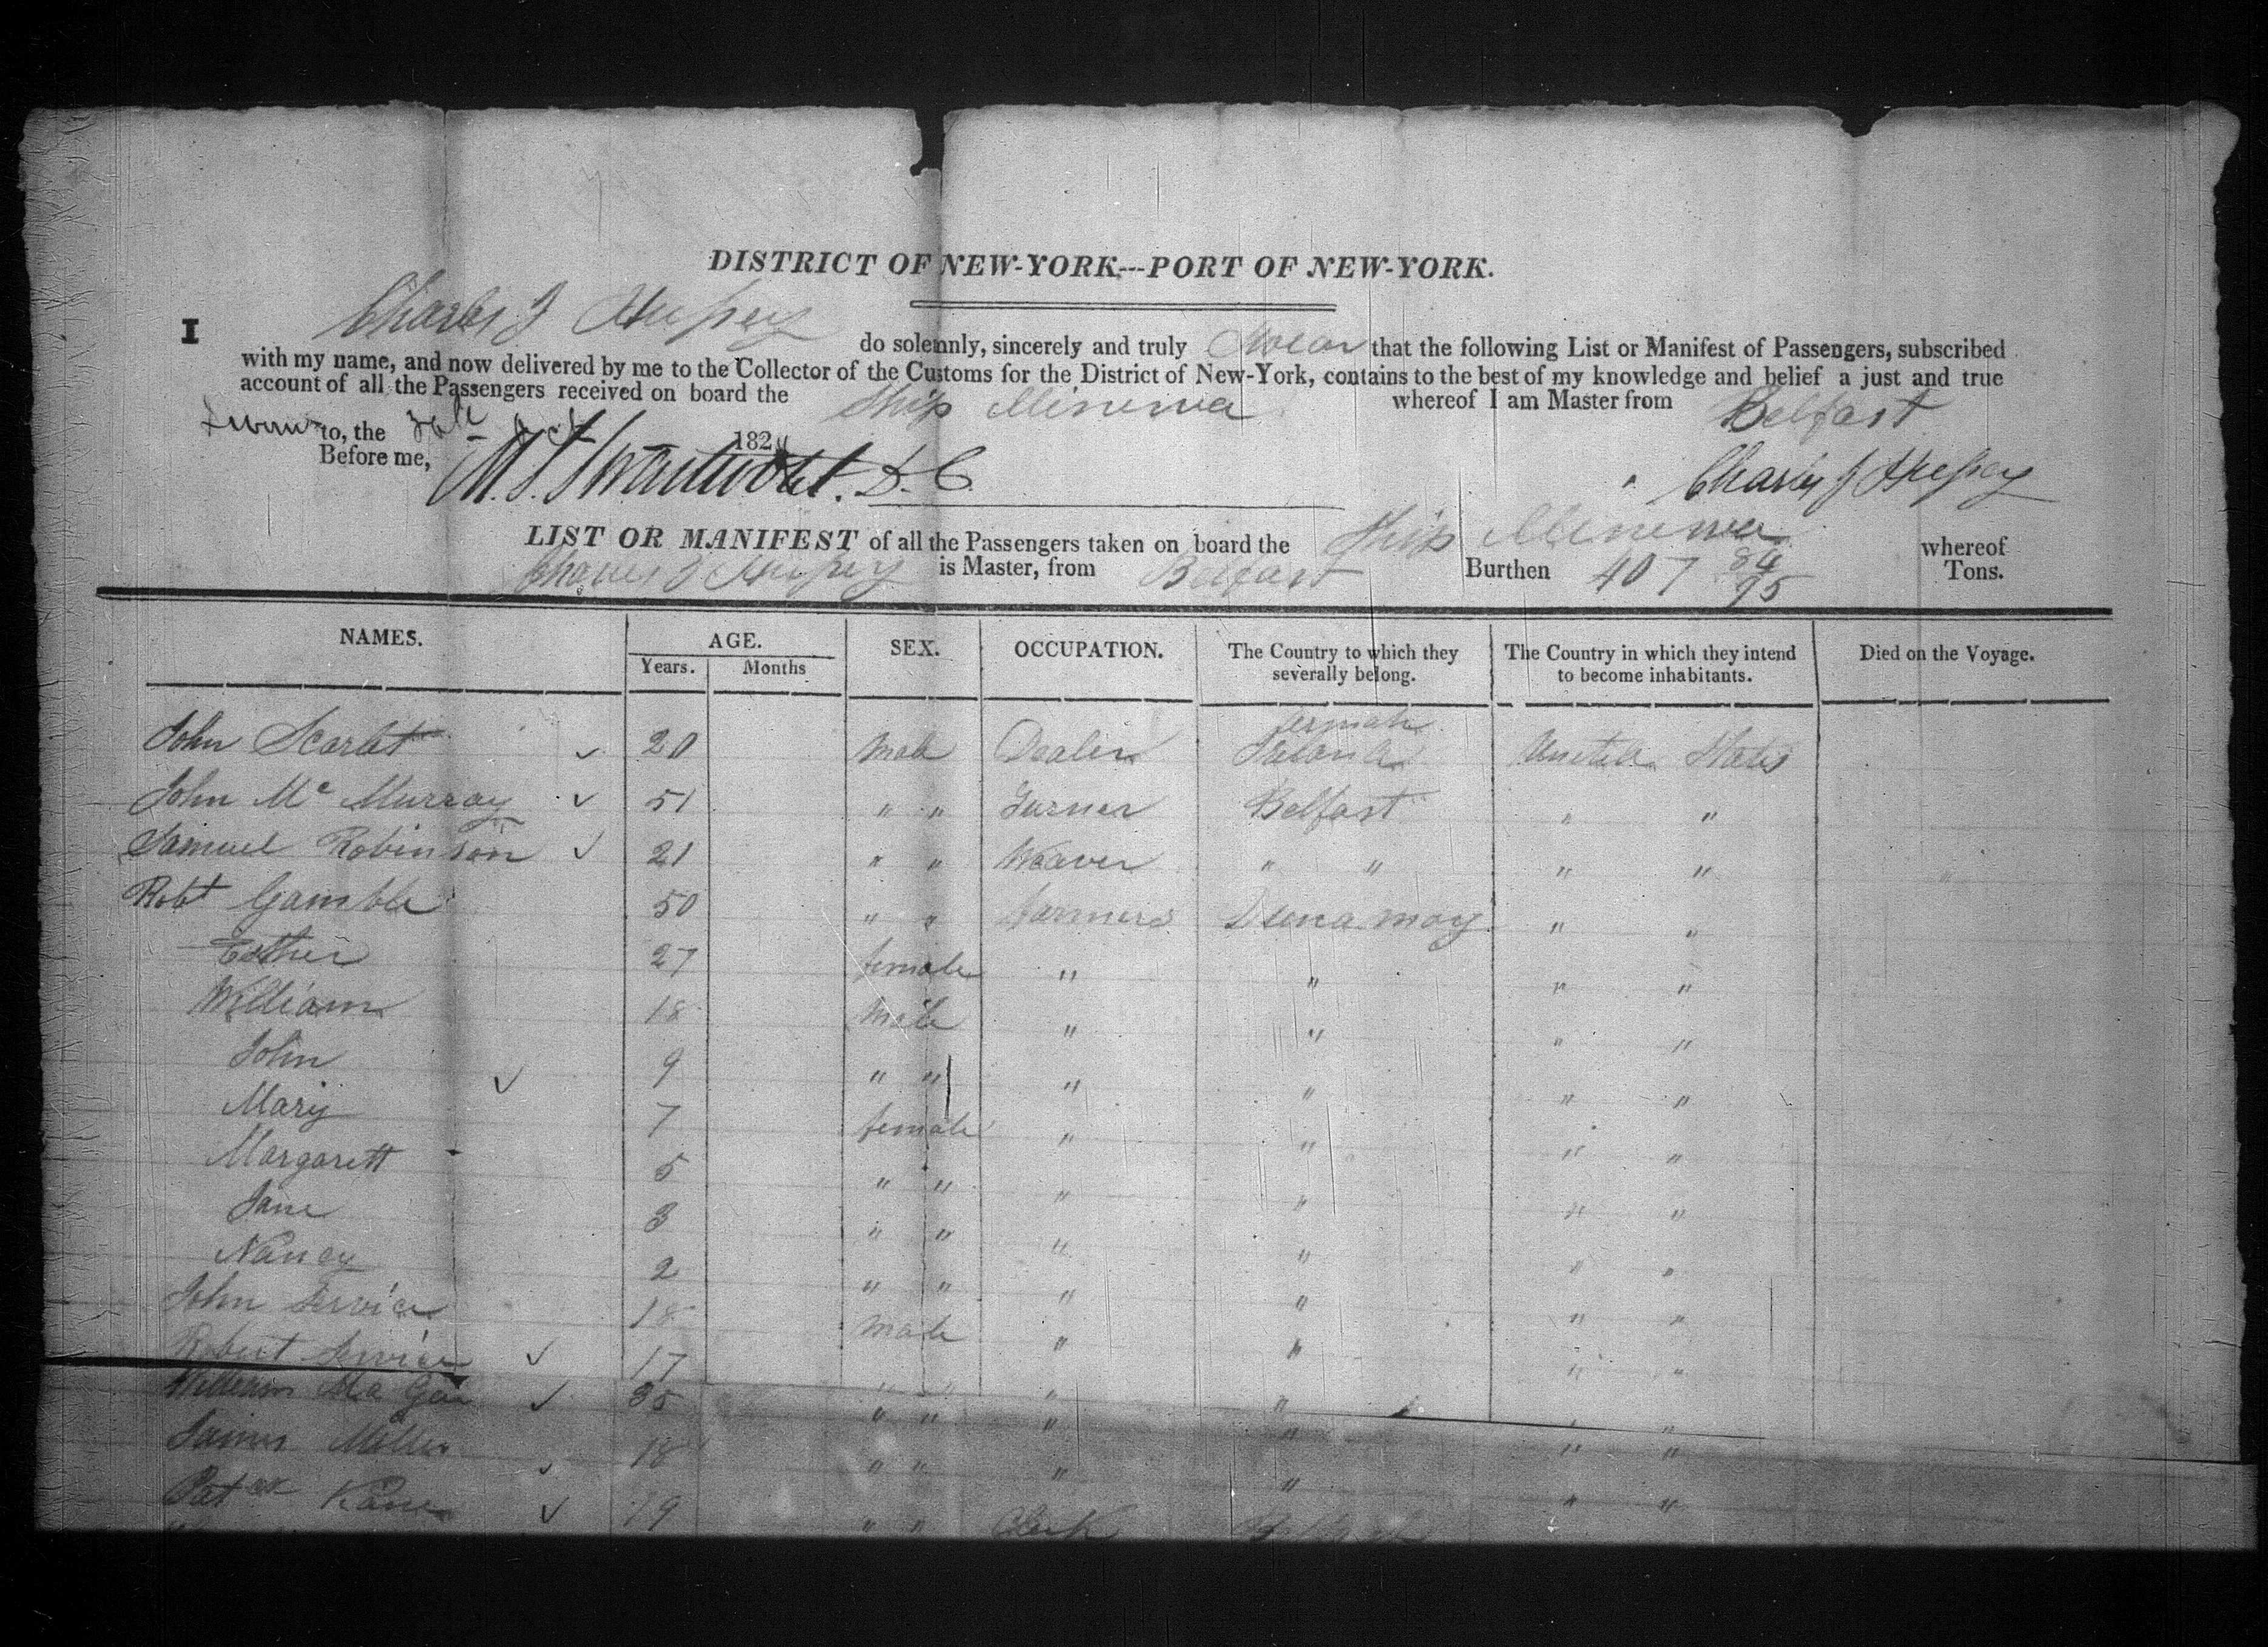 DISTRICT OF NEW-YORK---PORT OF NEW-YORK.
I Charles J do solemnly, sincerely and truly swear that the following List or Manifest of Passengers, subscribed
with my name, and now delivered by me to the Collector of the Customs for the District of New-York, contains to the best of my knowledge and belief a just and true
account of all the Passengers received on board the Ship Minerva whereof I am Master from Belfast
Sworn to, the 182
Before me, D. C. Charles J
LIST OR MANIFEST of all the Passengers taken on board the Ship Minerva whereof
Charles J is Master, from Belfast Burthen 407 84/95 Tons.
NAMES. AGE. SEX. OCCUPATION. The Country to which they severally belong. The Country in which they intend to become inhabitants. Died on the Voyage.
Years. Months
John Scarlet 20 Male Dealer Ireland United States
John Mc Murray 51 " " Turner Belfast " "
Samuel Robinson 21 " " Weaver " " " "
Robt Gamble 50 " " farmers " "
Esther 27 female " " " "
William 18 Male " " " "
John 9 " " " " " "
Mary 7 female " " " "
Margarett 5 " " " " " "
Jane 3 " " " " " "
Nancy 2 " " " " " "
John Service 18 Male " " " "
Robert Service 17 " " " " " "
William 35 " " " " " "
James Miller 18 " " " " " "
Patck Kane 19 " " Clerk